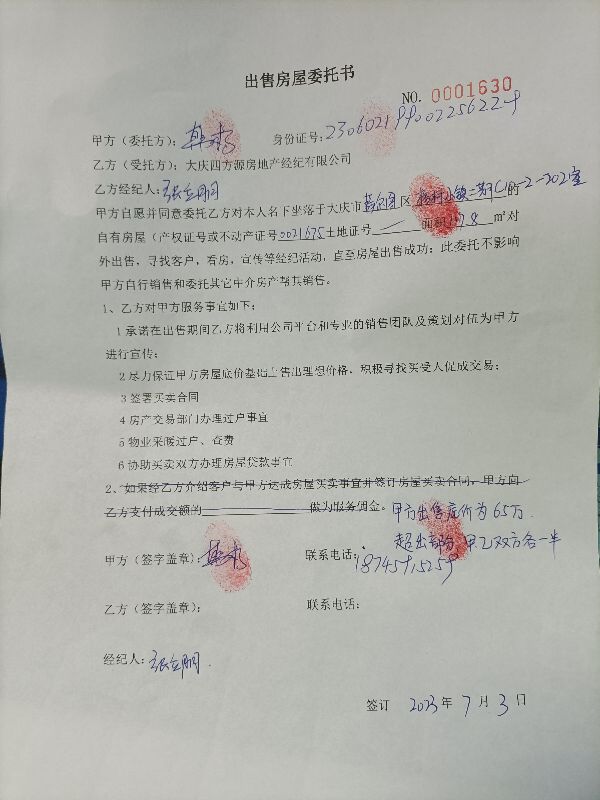 出售房屋委托书
NO. 0001630
甲方（委托方）： 身份证号：
乙方（受托方）：大庆四方源房地产经纪有限公司
乙方经纪人：张立朋
甲方自愿并同意委托乙方对本人名下坐落于大庆市 区 C10-2-202室的
自有房屋（产权证号或不动产证号0021675土地证号 面积117.8㎡对
外出售，寻找客户，看房，宣传等经纪活动，直至房屋出售成功；此委托不影响
甲方自行销售和委托其它中介房产帮其销售。
1、乙方对甲方服务事宜如下：
1承诺在出售期间乙方将利用公司平台和专业的销售团队及策划对位为甲方
进行宣传；
2尽力保证甲方房屋底价基础上售出理想价格，积极寻找买受人促成交易；
3签署买卖合同
4房产交易部门办理过户事宜
5物业采暖过户、查费
6协助买卖双方办理房屋贷款事宜
2、如果经乙方介绍客户与甲方达成房屋买卖事宜并签订房屋买卖合同，甲方向
乙方支付成交额的 做为服务佣金。甲方出售底价为65万.
超出部分,甲乙双方各一半
甲方（签字盖章）： 联系电话：
乙方（签字盖章）： 联系电话：
经纪人：张立朋.
签订 2023年7月3日